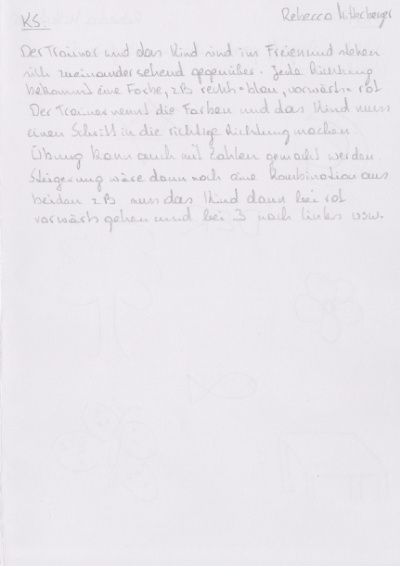 KS. Rebecca
Der Trainer und das Kind sind im Freien und stehen
sich zueinander sehend gegenüber. Jede Richtung
bekommt eine Farbe, zB rechts = blau, vorwärts = rot
Der Trainer nennt die Farben und das Kind muss
einen Schritt in die richtige Richtung machen.
Übung kann auch mit Zahlen gemacht werden.
Steigerung wäre dann noch eine Kombination aus
beiden zB muss das Kind dann bei rot
vorwärts gehen und bei 3 nach links usw.